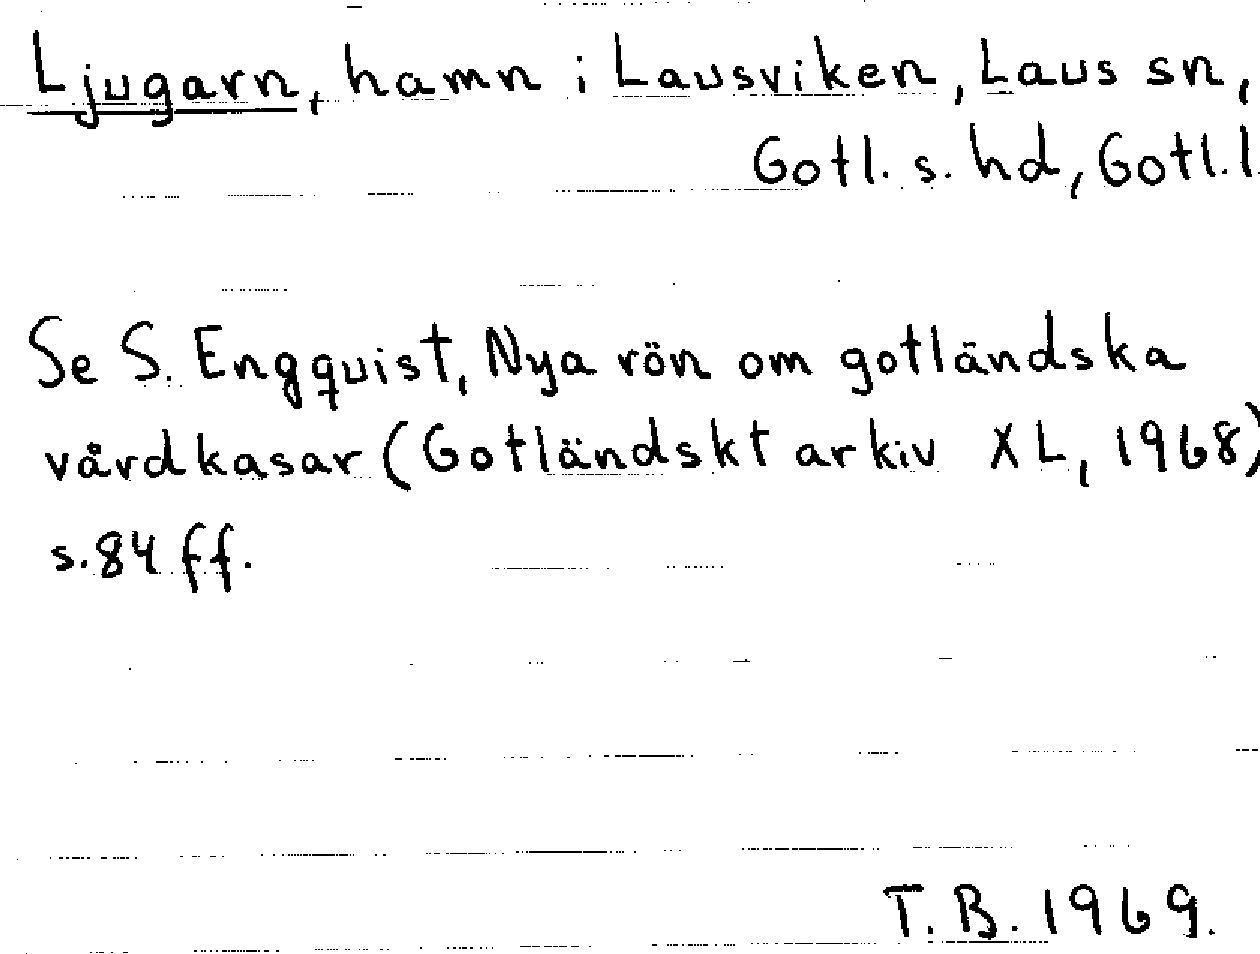 Ljugarn, hamn i Lausviken, Laus sn,
Gotl. s. hd, Gotl. l.
Se S. Engquist, Nya rön om gotländska
vårdkasar (Gotländskt arkiv XL, 1968)
s. 84 ff.
T. B. 1969.